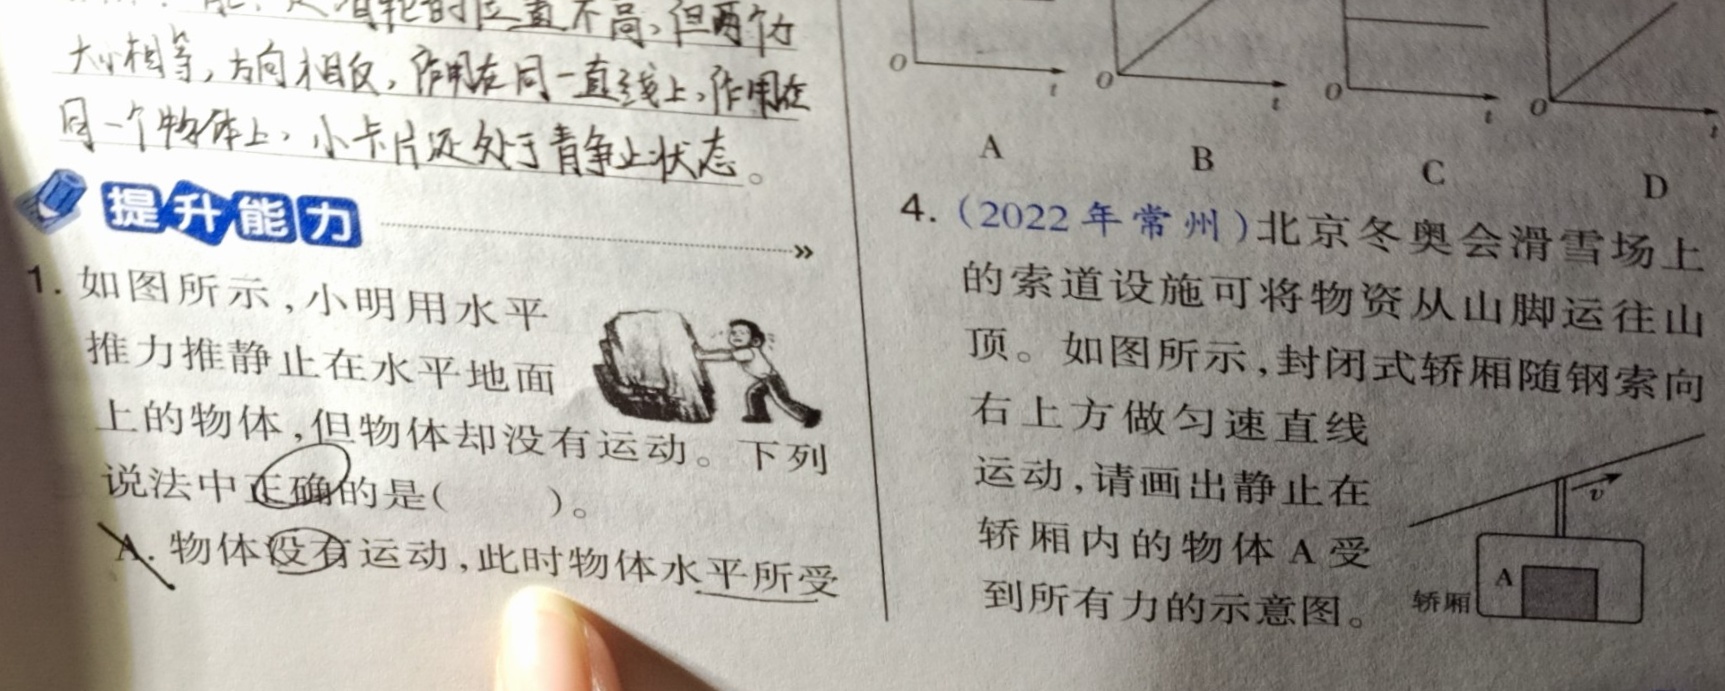 的位置不高，但两个力
大小相等，方向相反，作用在同一直线上，作用在
同一个物体上，小卡片还处于青争止状态。
提升能力
1. 如图所示，小明用水平
推力推静止在水平地面
上的物体，但物体却没有运动。下列
说法中正确的是(　　)。
A. 物体没有运动，此时物体水平所受
O t
O t
O t
O t
A B C D
4. (2022年常州)北京冬奥会滑雪场上
的索道设施可将物资从山脚运往山
顶。如图所示，封闭式轿厢随钢索向
右上方做匀速直线
运动，请画出静止在
轿厢内的物体A受
到所有力的示意图。
v
A
轿厢